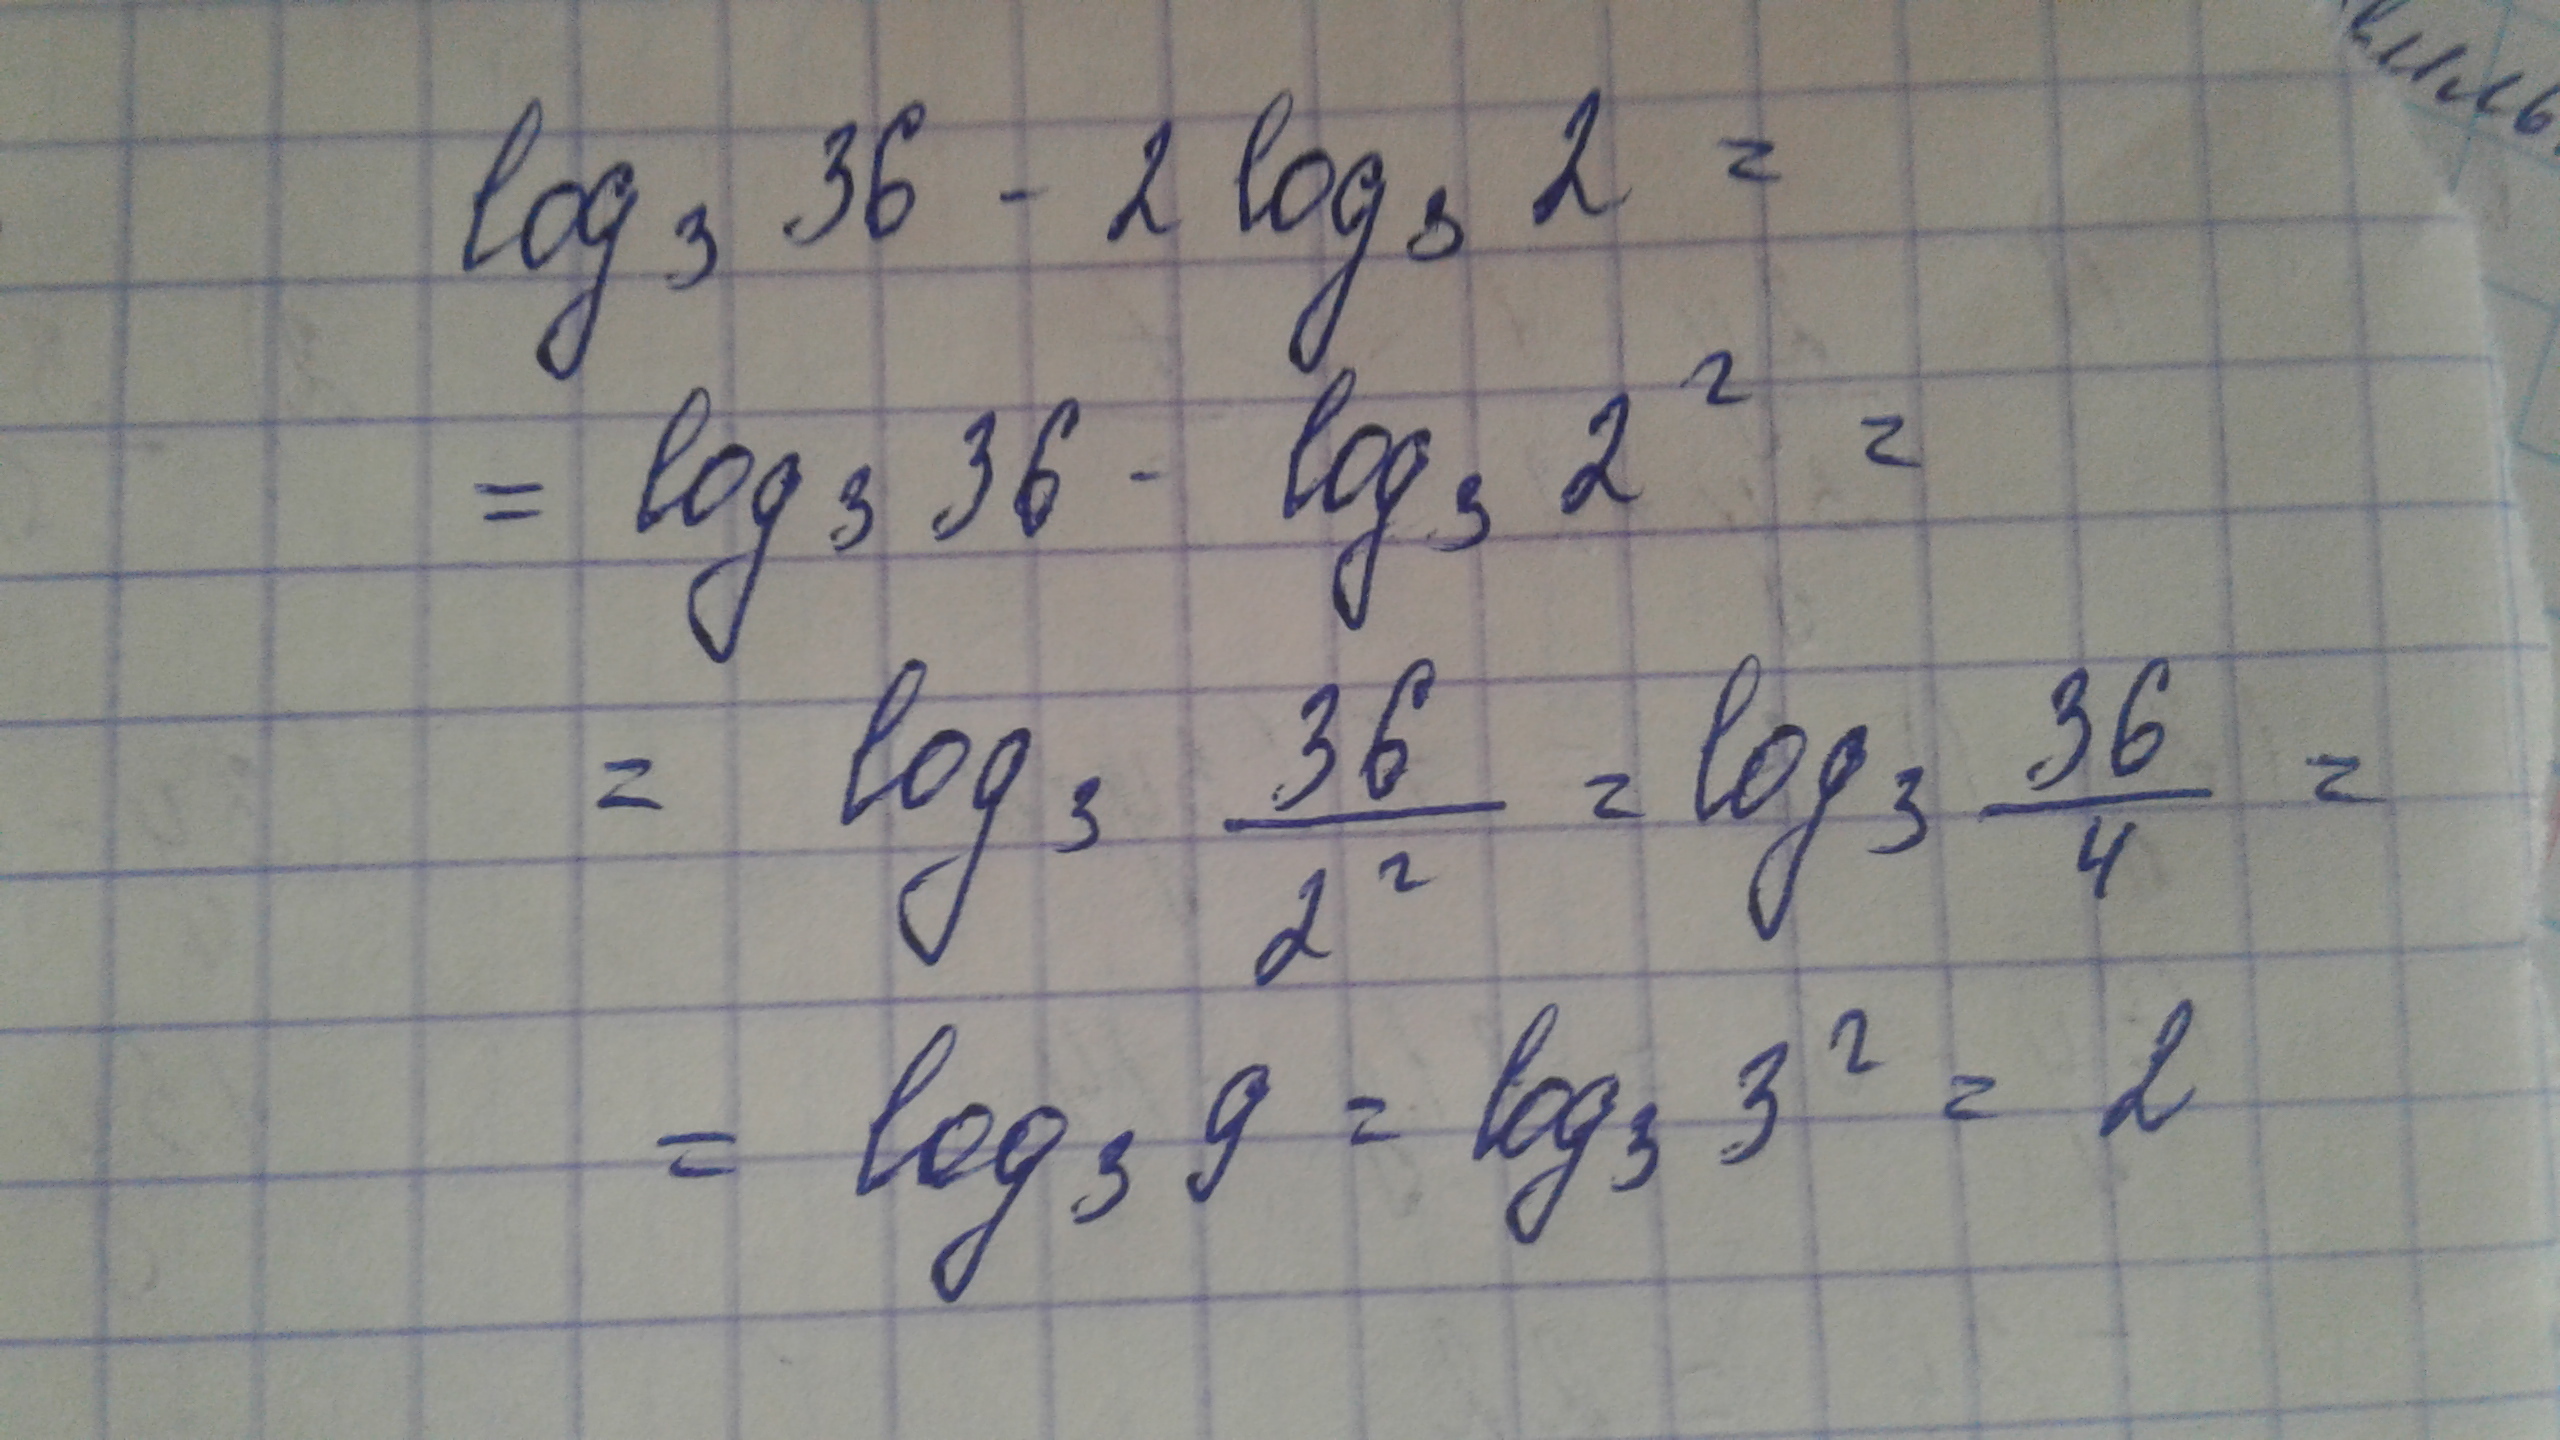 log₃ 36 - 2 log₃ 2 =
= log₃ 36 - log₃ 2² =
= log₃ 36/2² = log₃ 36/4 =
= log₃ 9 = log₃ 3² = 2